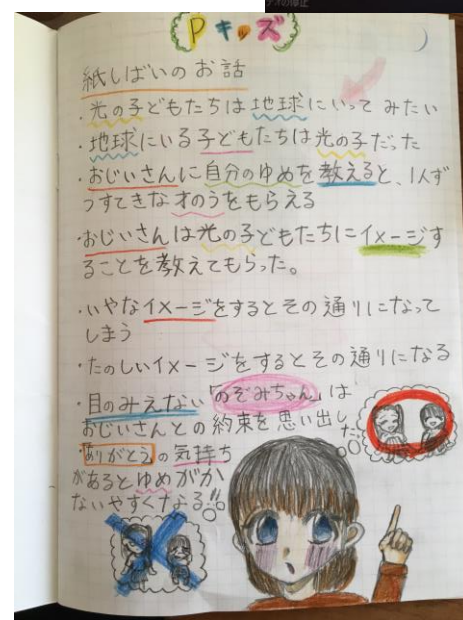 Pキッズ
紙しばいのお話
・光の子どもたちは地球にいってみたい
・地球にいる子どもたちは光の子だった
・おじいさんに自分のゆめを教えると、1人ず
つすてきな才のうをもらえる
・おじいさんは光の子どもたちにイメージす
ることを教えてもらった。
・いやなイメージをするとその通りになって
しまう
・たのしいイメージをするとその通りになる
・目のみえない「のぞみちゃん」は
おじいさんとの約束を思い出し
た。
・「ありがとう」の気持ち
があるとゆめがか
ないやすくなる!!